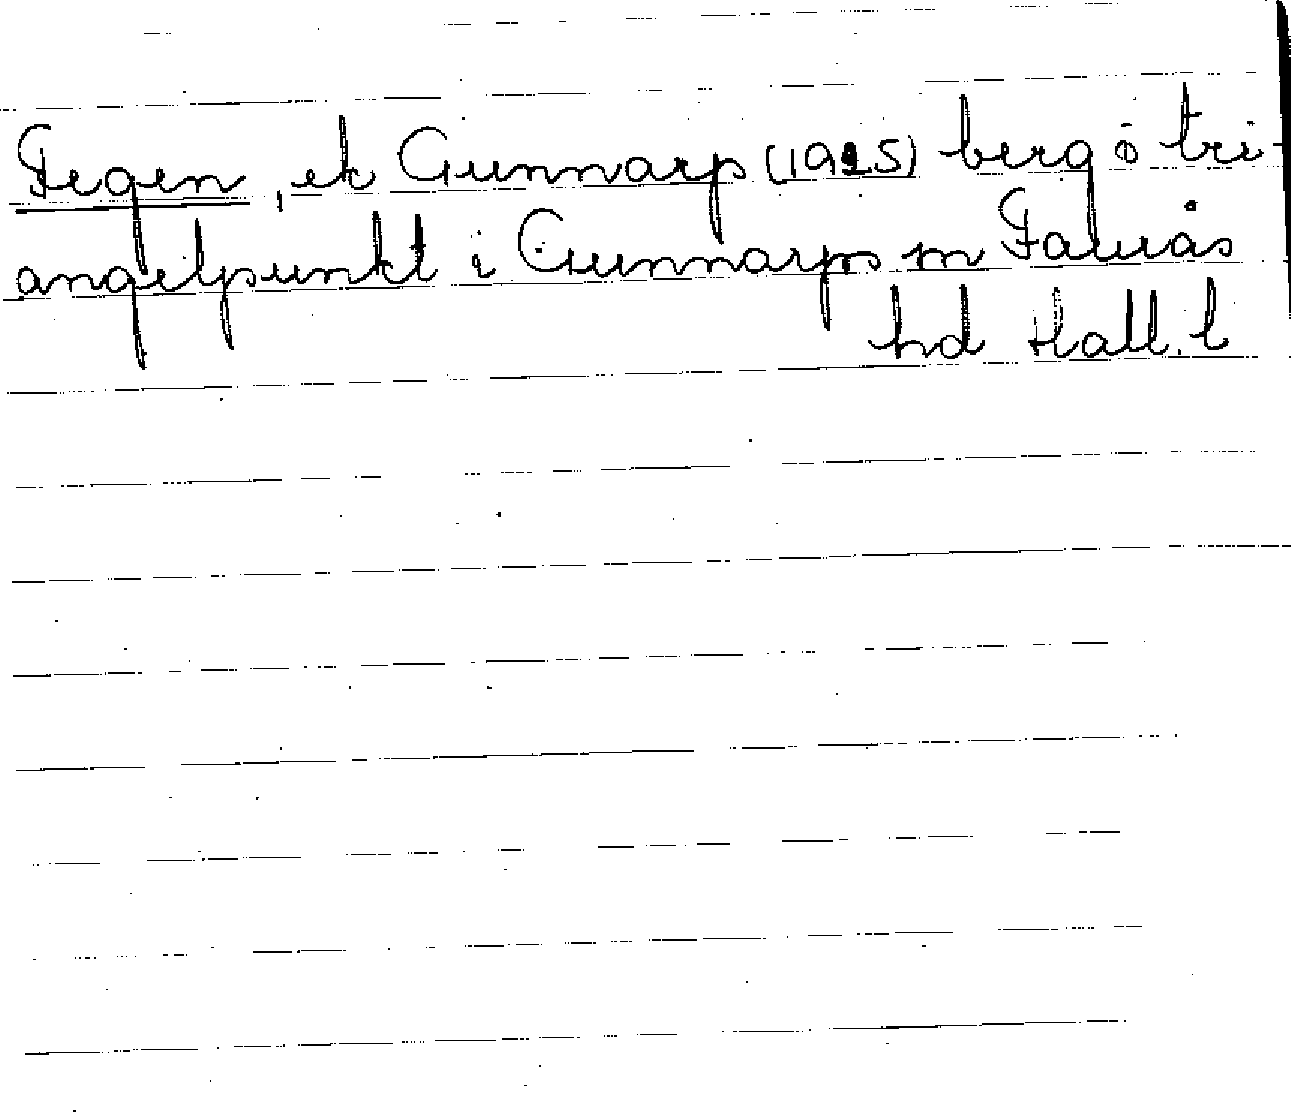 Fegen, ek Gunnarp (1925) berg ö tri-
angelpunkt i Gunnarps sn Faurås
hd Hall. l